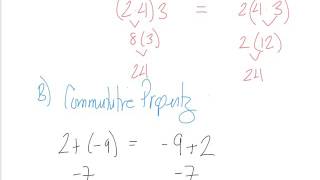 (2·4)3 = 2(4·3)
8(3) 2(12)
24 24
B) Commutative Property
2+(-9) = -9+2
-7 -7